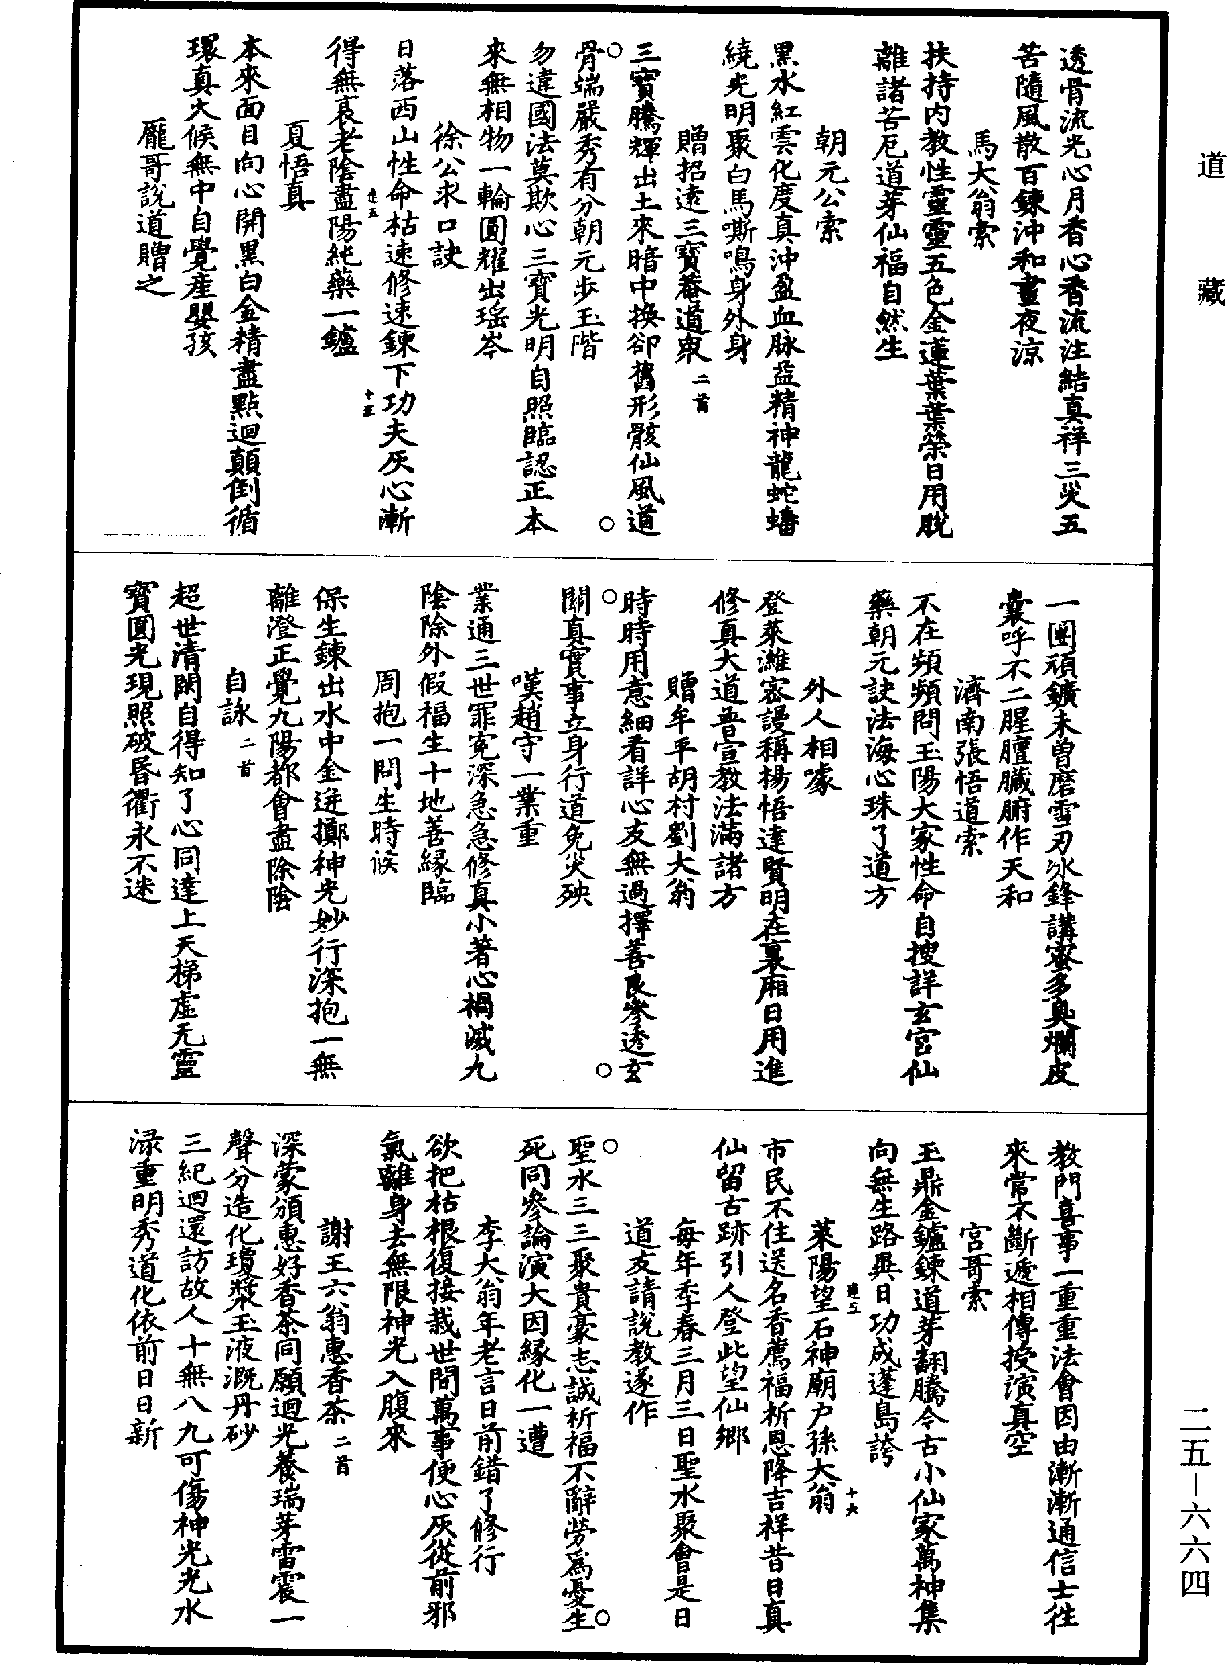 道藏
透骨流光心月香心香流注結真祥三災五
苦隨風散百鍊沖和晝夜涼
馬大翁索
扶持內教性靈靈五色金蓮葉葉榮日用脫
離諸苦厄道芽仙福自然生
朝元公索
黑水紅雲化度真沖盈血脉益精神龍蛇蟠
繞光明聚白馬嘶鳴身外身
贈招遠三寶菴道衆二首
三寶騰輝出土來暗中換卻舊形骸仙風道
骨端嚴秀有分朝元步玉階
○
○
勿違國法莫欺心三寶光明自照臨認正本
來無相物一輪圓耀出瑤岑
徐公求口訣
日落西山性命枯速修速鍊下功夫灰心漸
得無衰老陰盡陽純藥一鑪
十五
夏悟真
本來面目向心開黑白金精盡點迴顛倒循
環真火候無中自覺産嬰孩
龐哥說道贈之
一團頑鑛未曾磨雪刃冰鋒講蜜多臭爛皮
囊呼不二腥膻臟腑作天和
濟南張悟道索
不在頻頻問玉陽大家性命自搜詳玄宮仙
藥朝元訣法海心珠了道方
外人相噱
登萊濰密謾稱楊悟達賢明在裏廂日用進
修真大道普宣教法滿諸方
贈牟平胡村劉大翁
時時用意細看詳心友無過擇善良參透玄
關真實事立身行道免災殃
○
○
嘆趙守一業重
業通三世罪寃深急急修真小著心禍滅九
陰除外假福生十地善緣臨
周抱一問生時候
保生鍊出水中金迸擲神光妙行深抱一無
離澄正覺九陽都會盡除陰
自詠二首
超世清閑自得知了心同達上天梯虛无靈
寶圓光現照破昏衢永不迷
教門喜事一重重法會因由漸漸通信士往
來常不斷遞相傳授演真空
宮哥索
玉鼎金鑪鍊道芽翻騰今古小仙家萬神集
向無生路異日功成蓬島誇
萊陽望石神廟户孫大翁
十六
市民不住送名香薦福祈恩降吉祥昔日真
仙留古跡引人登此望仙鄉
每年季春三月三日聖水聚會是日
道友請說教遂作
聖水三三聚貴豪志誠祈福不辭勞爲憂生
死同參論演大因緣化一遭
○
○
李大翁年老言日前錯了修行
欲把枯根復接栽世間萬事便心灰從前邪
氣離身去無限神光入腹來
謝王六翁惠香茶二首
深蒙頒惠好香茶同願迴光養瑞芽雷震一
聲分造化瓊漿玉液溉丹砂
三紀迴還訪故人十無八九可傷神光光水
渌重明秀道化依前日日新
二五—六六四